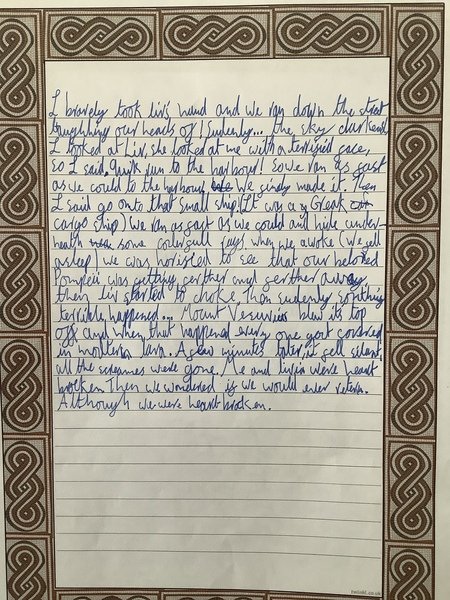 I bravely took liv's hand and we ran down the street
laughing our heads of! Sudenly... the sky darkened,
I looked at Liv, she looked at me with a terrisied face,
so I said, quik run to the harbour! So we ran as fast
as we could to the harbour, we sinaly made it. Then
I said go onto that small ship! (It was a Greak
cargo ship) we ran as fast as we could and hide under-
neath some colersull rags when we awoke (we sell
asleep) we was horissed to see that our beloved
Pompeii was getting serther and serther away
then liv started to choke, Then sudenly somthing
terrible happened... Mount Vesuvius blew its top
off and when that happened every one gort covered
in molten lava. A few minutes later, it sell silent
all the screames were gone. Me and livia were heart
broken. Then we wondered is we would ever retern.
Although we were heart broken.
twinkl.co.uk